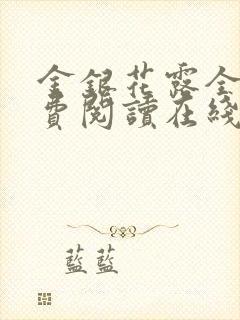 金銀花露全
費閱讀在綫
藍藍